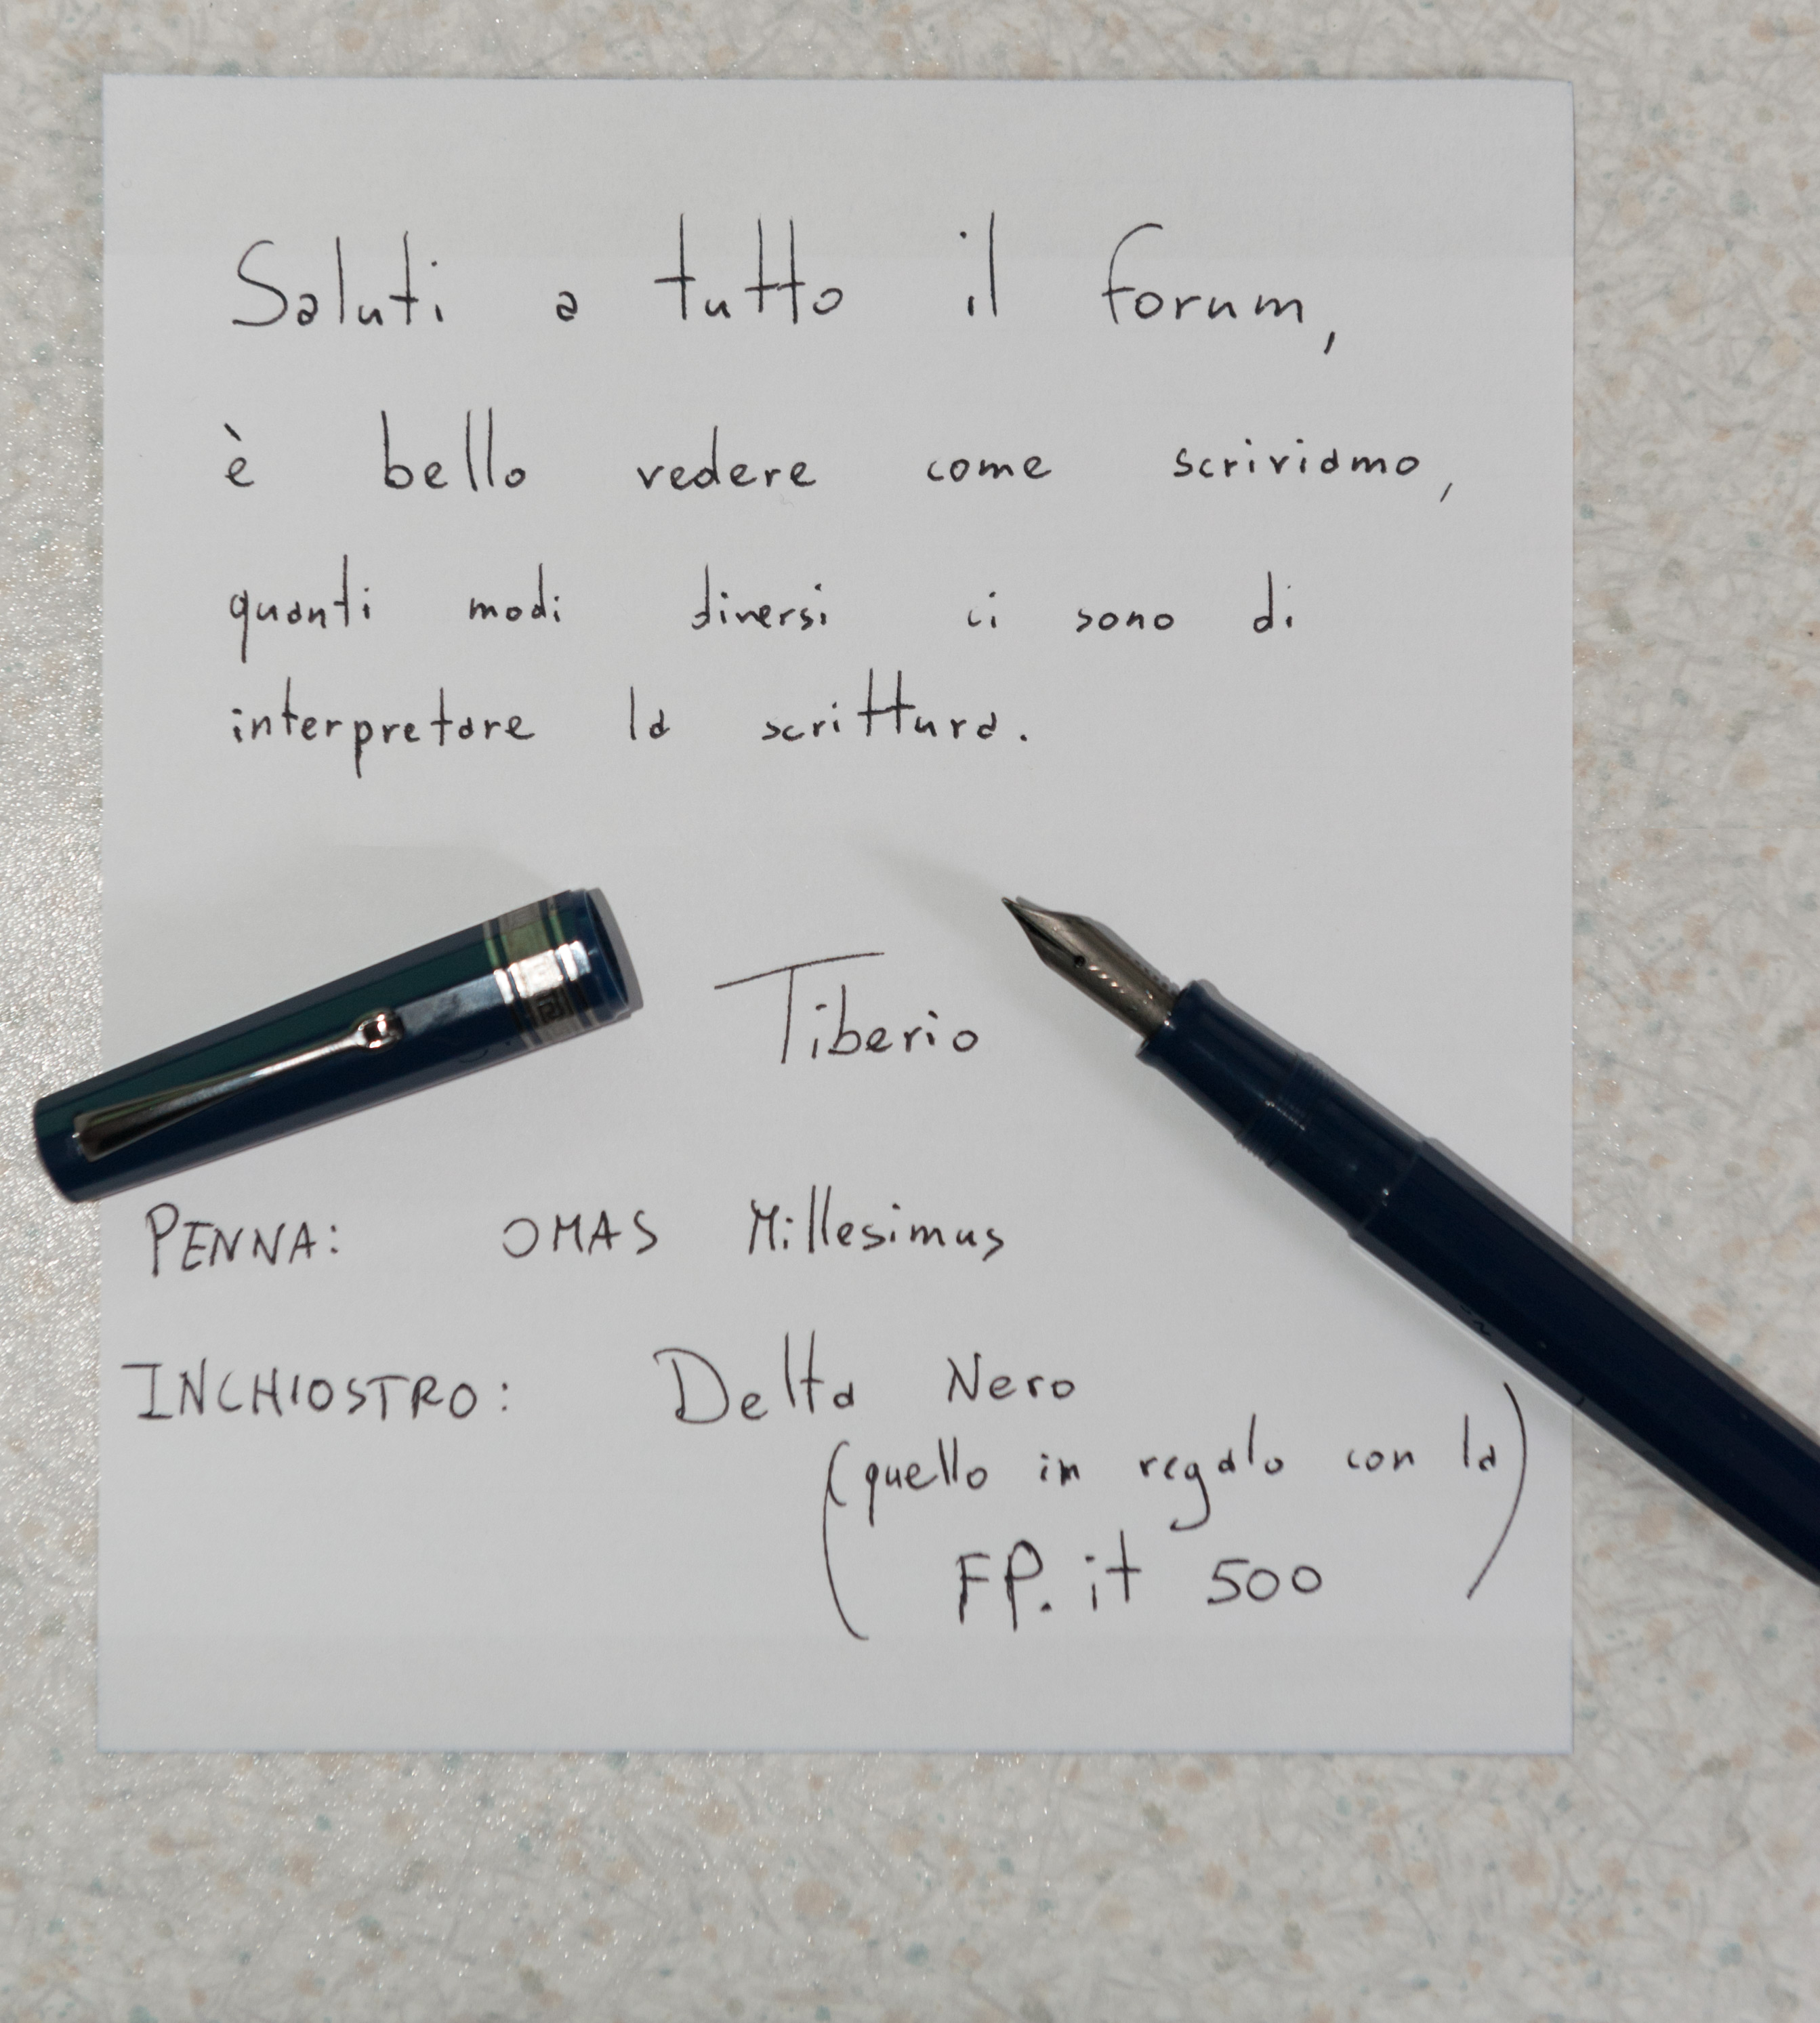 Saluti a tutto il forum,
è bello vedere come scriviamo,
quanti modi diversi ci sono di
interpretare la scrittura.
Tiberio
PENNA: OMAS Millesimus
INCHIOSTRO: Delta Nero
(quello in regalo con la
FP.it 500)